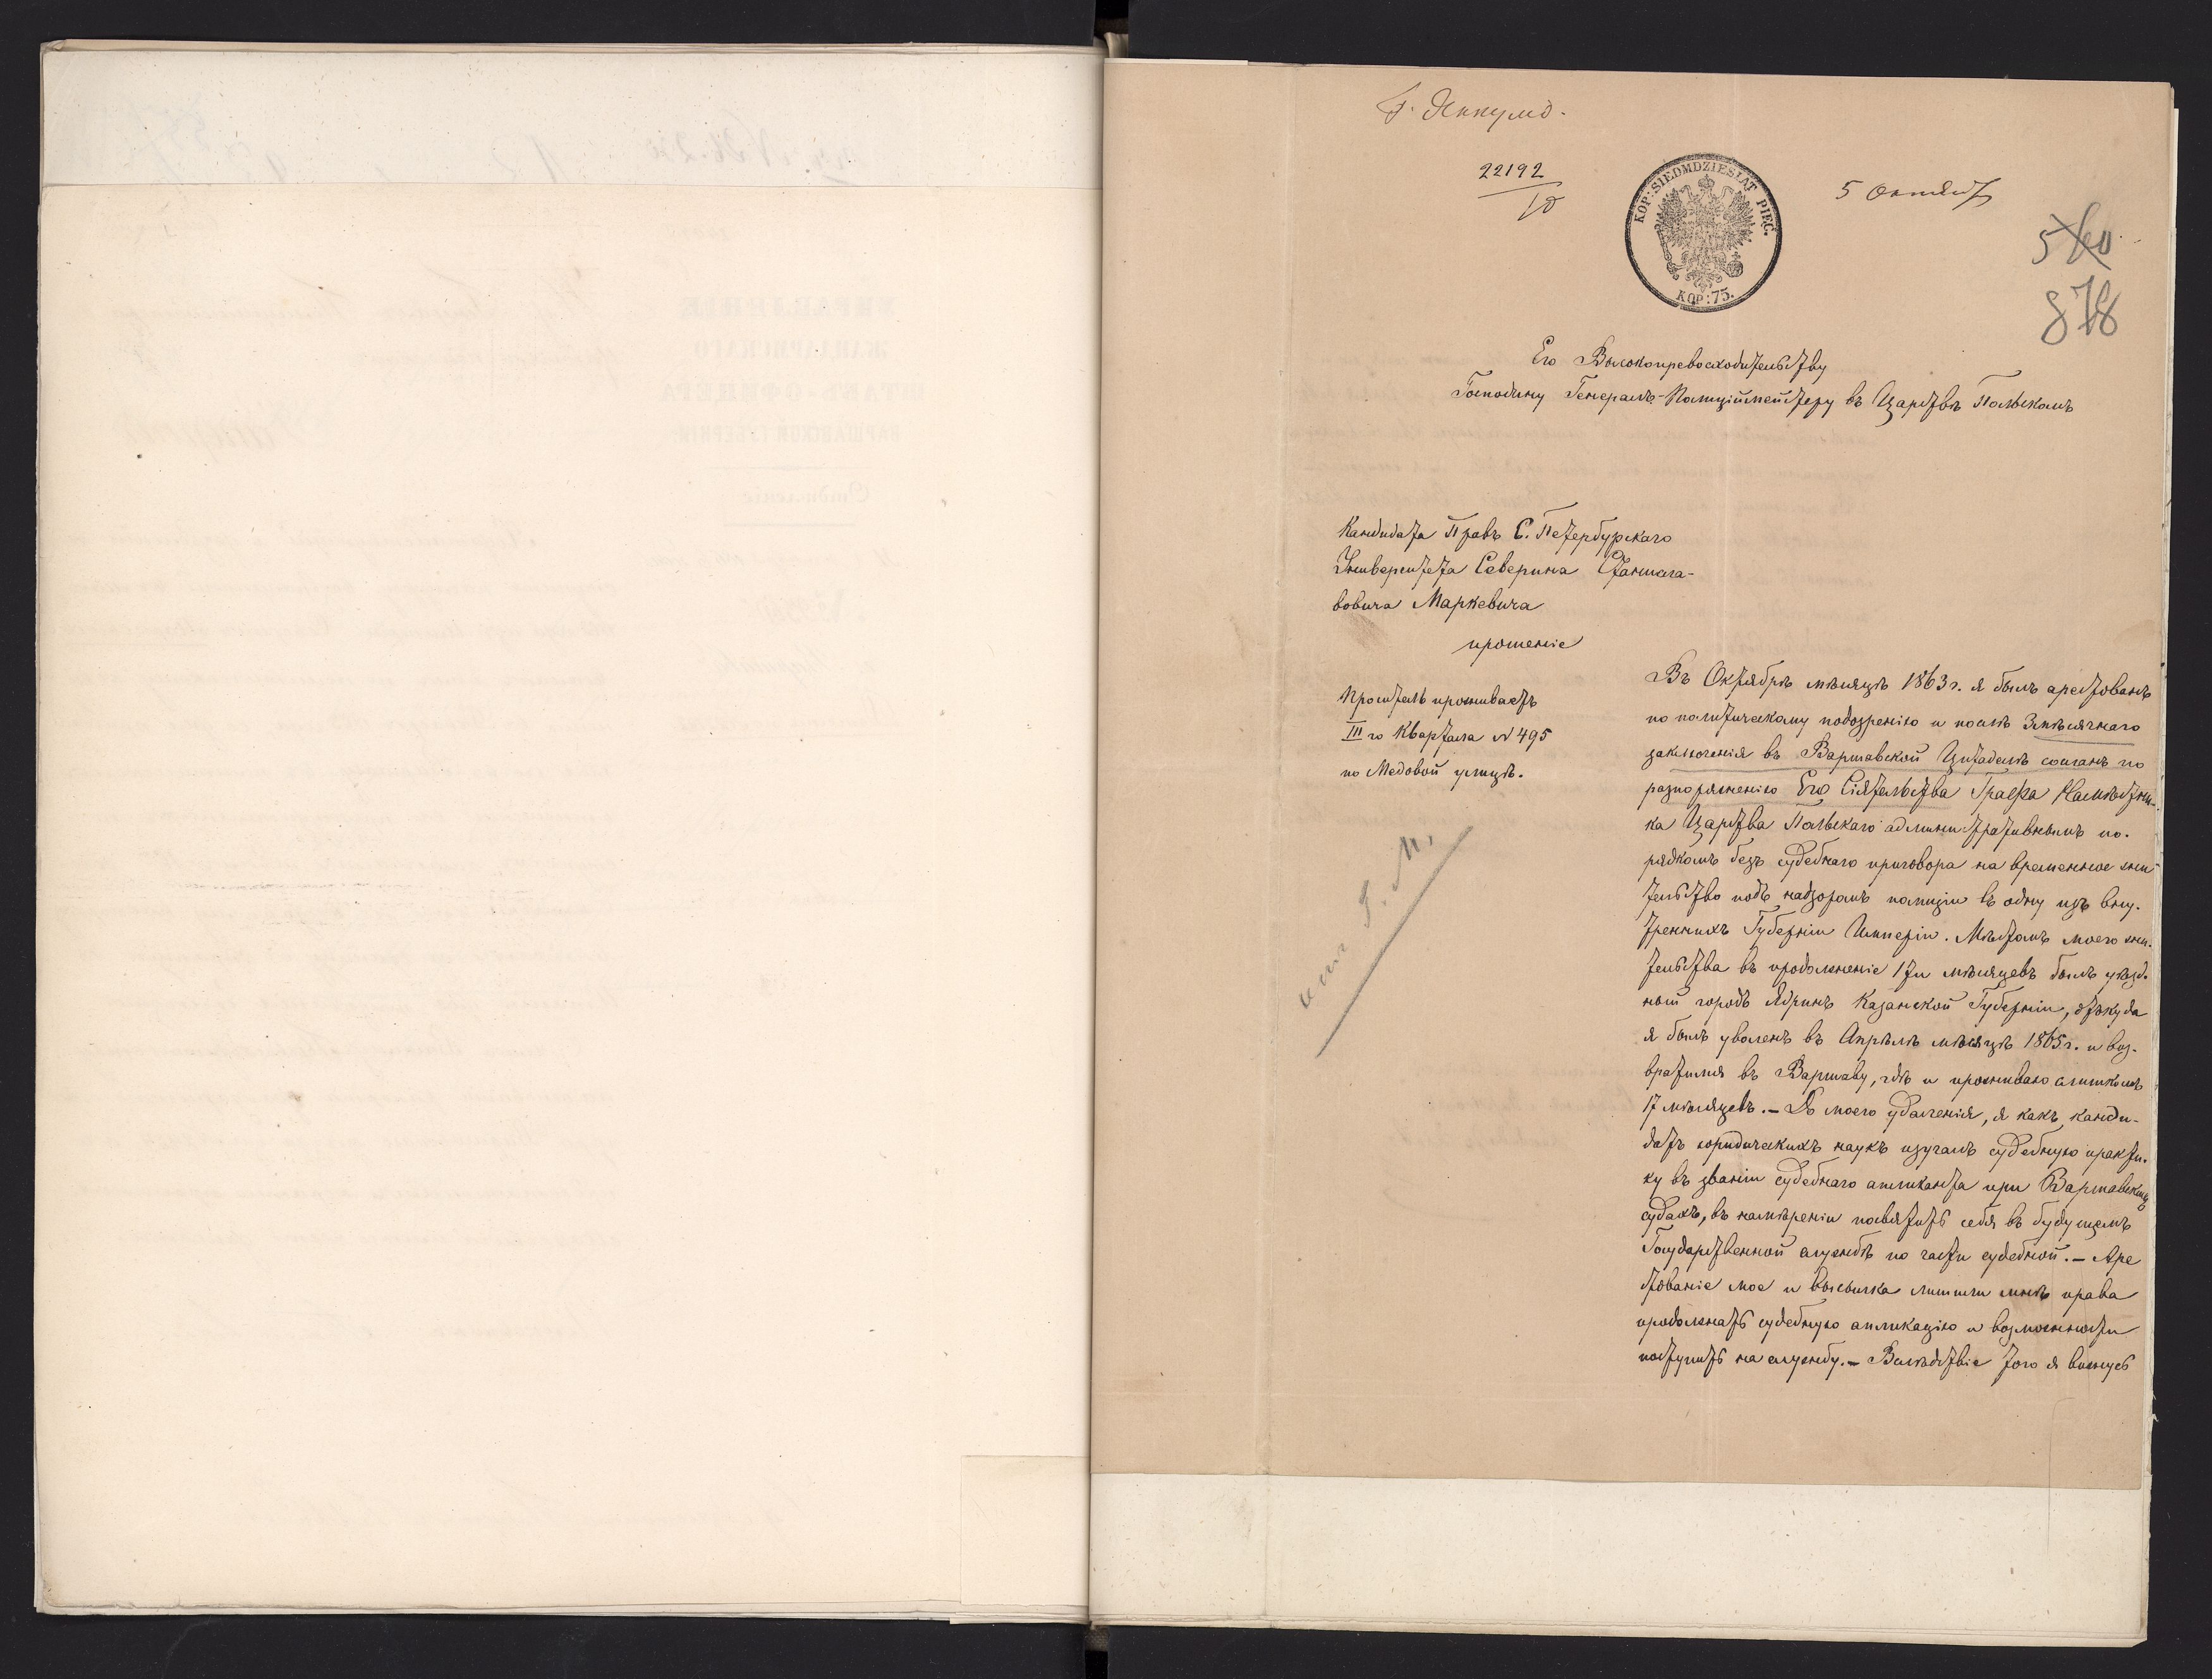 22192
10
KOP: SIEDMDZIESIĄT PIĘĆ.
KOP: 75.
5 Октяб
560
878
Его Высокопревосходительству
Господину Генералъ-Полиціймейстеру въ Царствѣ Польскомъ
Кандидата Правъ С. Петербурскаго
Университета Северина Станисла-
вовича Маркевича
прошеніе
Проситель проживаетъ
III го Квартала N 495
по Медовой улицѣ.
Въ Октябрѣ мѣсяцѣ 1863 г. я былъ арестованъ
по политическому подозренію и послѣ 3мѣсячнаго
заключенія въ Варшавской Цитаделѣ сосланъ по
разпоряженію Его Сіятельства Графа Намѣстни-
ка Царства Польскаго административнымъ по-
рядкомъ безъ судебнаго приговора на временное жи-
тельство подъ надзоромъ полиціи въ одну изъ вну-
тренныхъ Губерніи Имперіи. Мѣстомъ моего жи-
тельства въ продолженіе 17и мѣсяцевъ былъ уѣзд-
ный городъ Ядринъ Казанской Губерніи, отъкуда
я былъ уволенъ въ Апрѣлѣ мѣсяцѣ 1865 г. и воз-
вратился въ Варшаву, гдѣ и проживаю слишкомъ
17 мѣсяцевъ. – До моего удаленія, я какъ канди-
датъ юридическихъ наукъ изучалъ судебную практи-
ку въ званіи судебнаго апликанта при Варшавскихъ
судахъ, въ намѣреніи посвятить себя въ будущемъ
Государственной службѣ по части судебной. – Аре
стованіе мое и высылка лишили мнѣ права
продолжать судебную апликацію и возможности
поступить на службу. – Вслѣдствіе того я вынуж